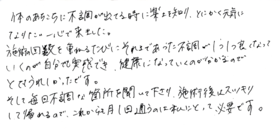 体のあちこちに不調が出てる時に楽と知り、とにかく元気に
なりたい一心で来ました。
施術回数を重ねるたびに、それまであった不調が1つ1つ良くなって
いくのが自分でも実感でき、健康になっていくのがわかるので
とてもうれしかったです。
そして毎日不調な箇所を聞いて下さり、施術後はスッキリ
して帰れるので、これからも月1回通うのは私にとって必要です。